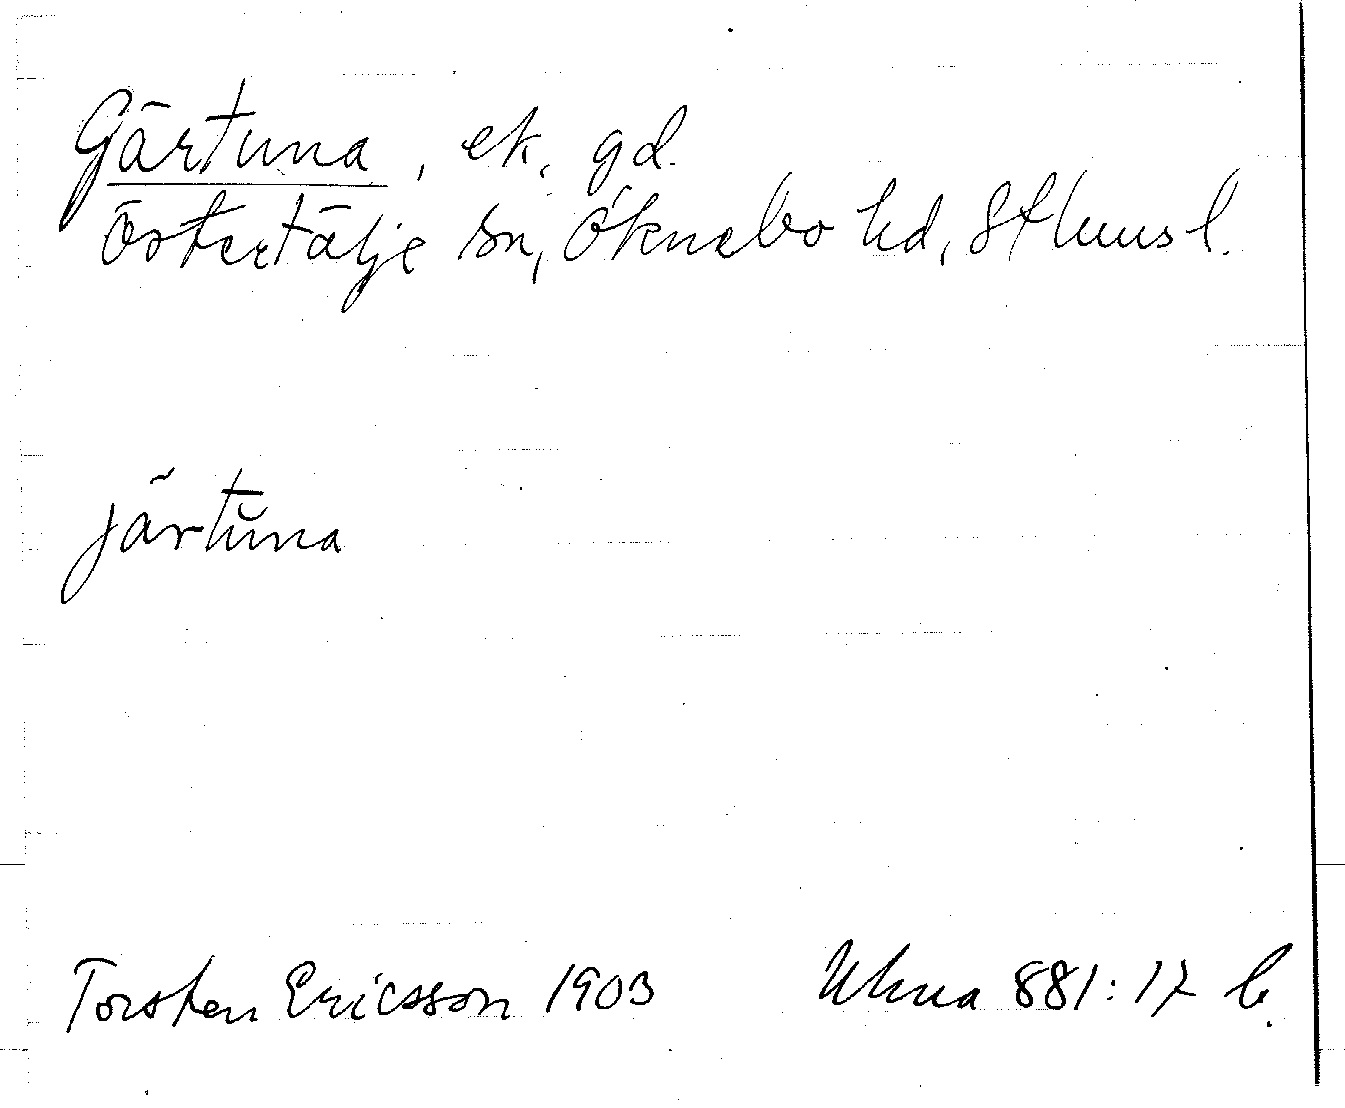 Gärtuna, ek. gd.
Östertälje sn, Öknebo hd, Sthms l.
järtŭna
Torsten Ericsson 1903 Uhna 881:17 b.